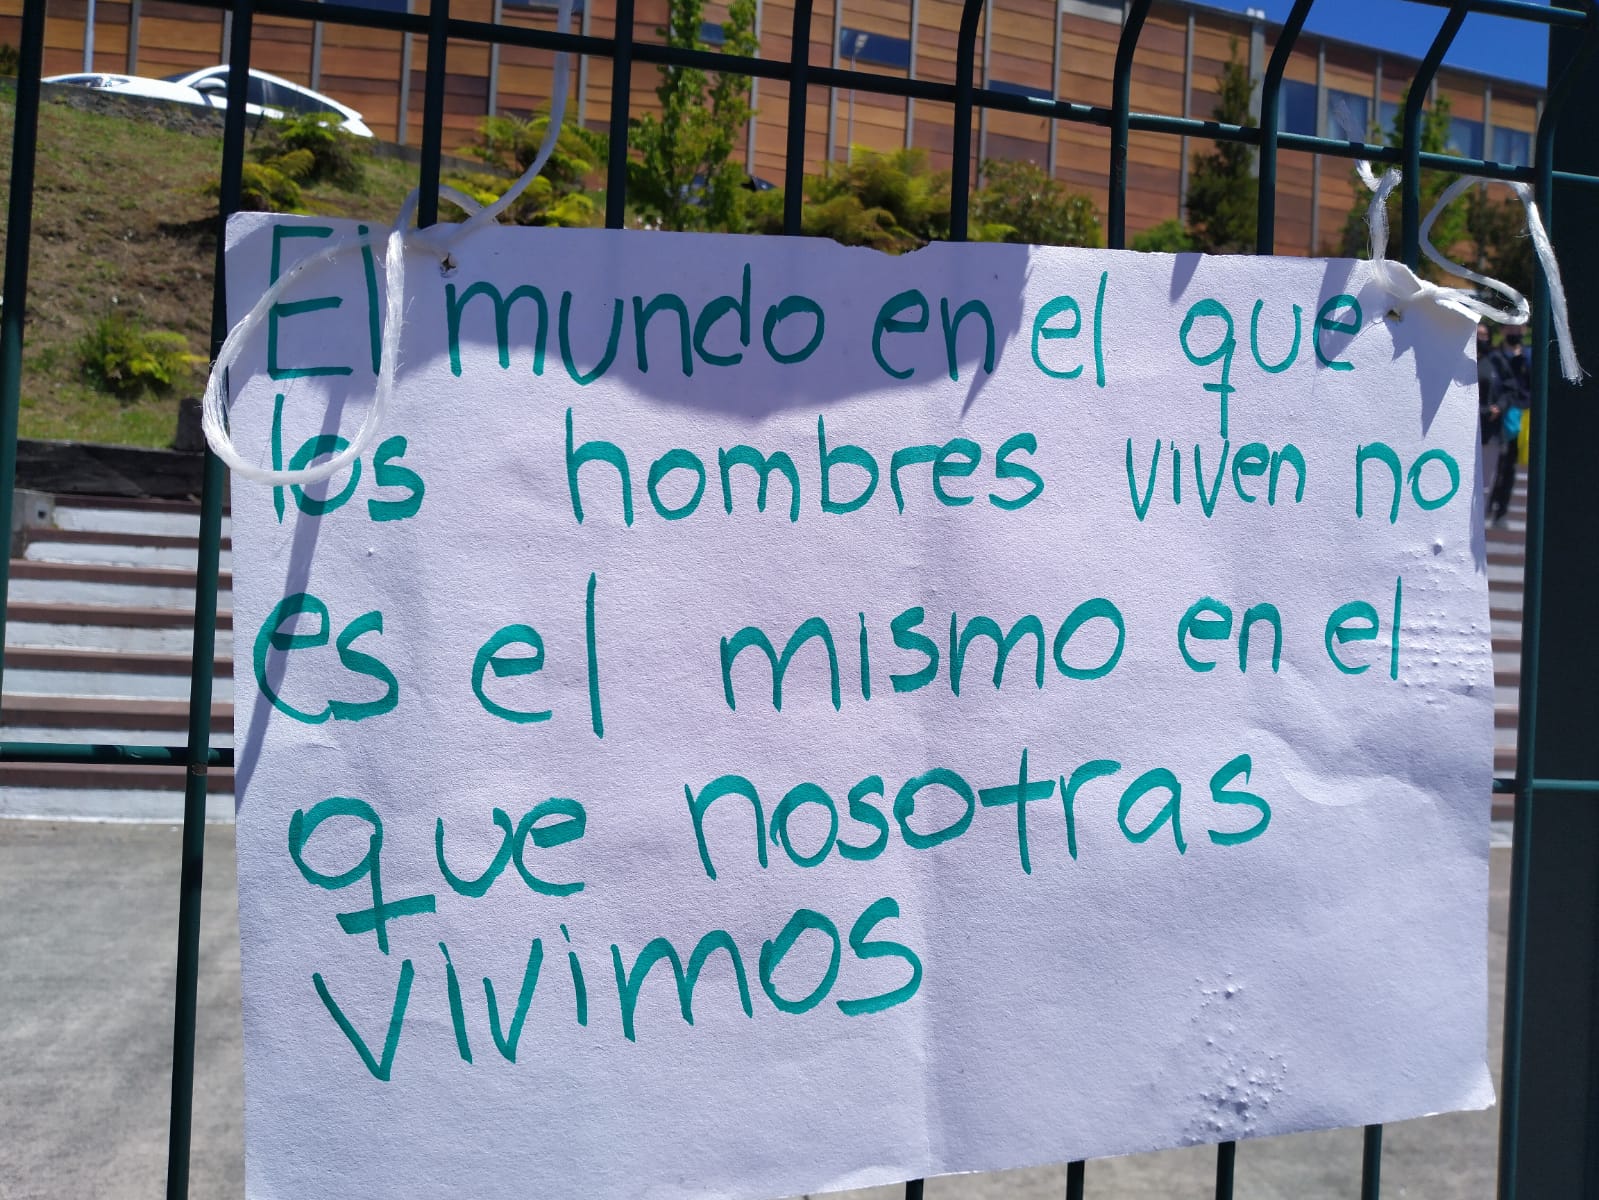 El mundo en el que
los hombres viven no
es el mismo en el
que nosotras
vivimos